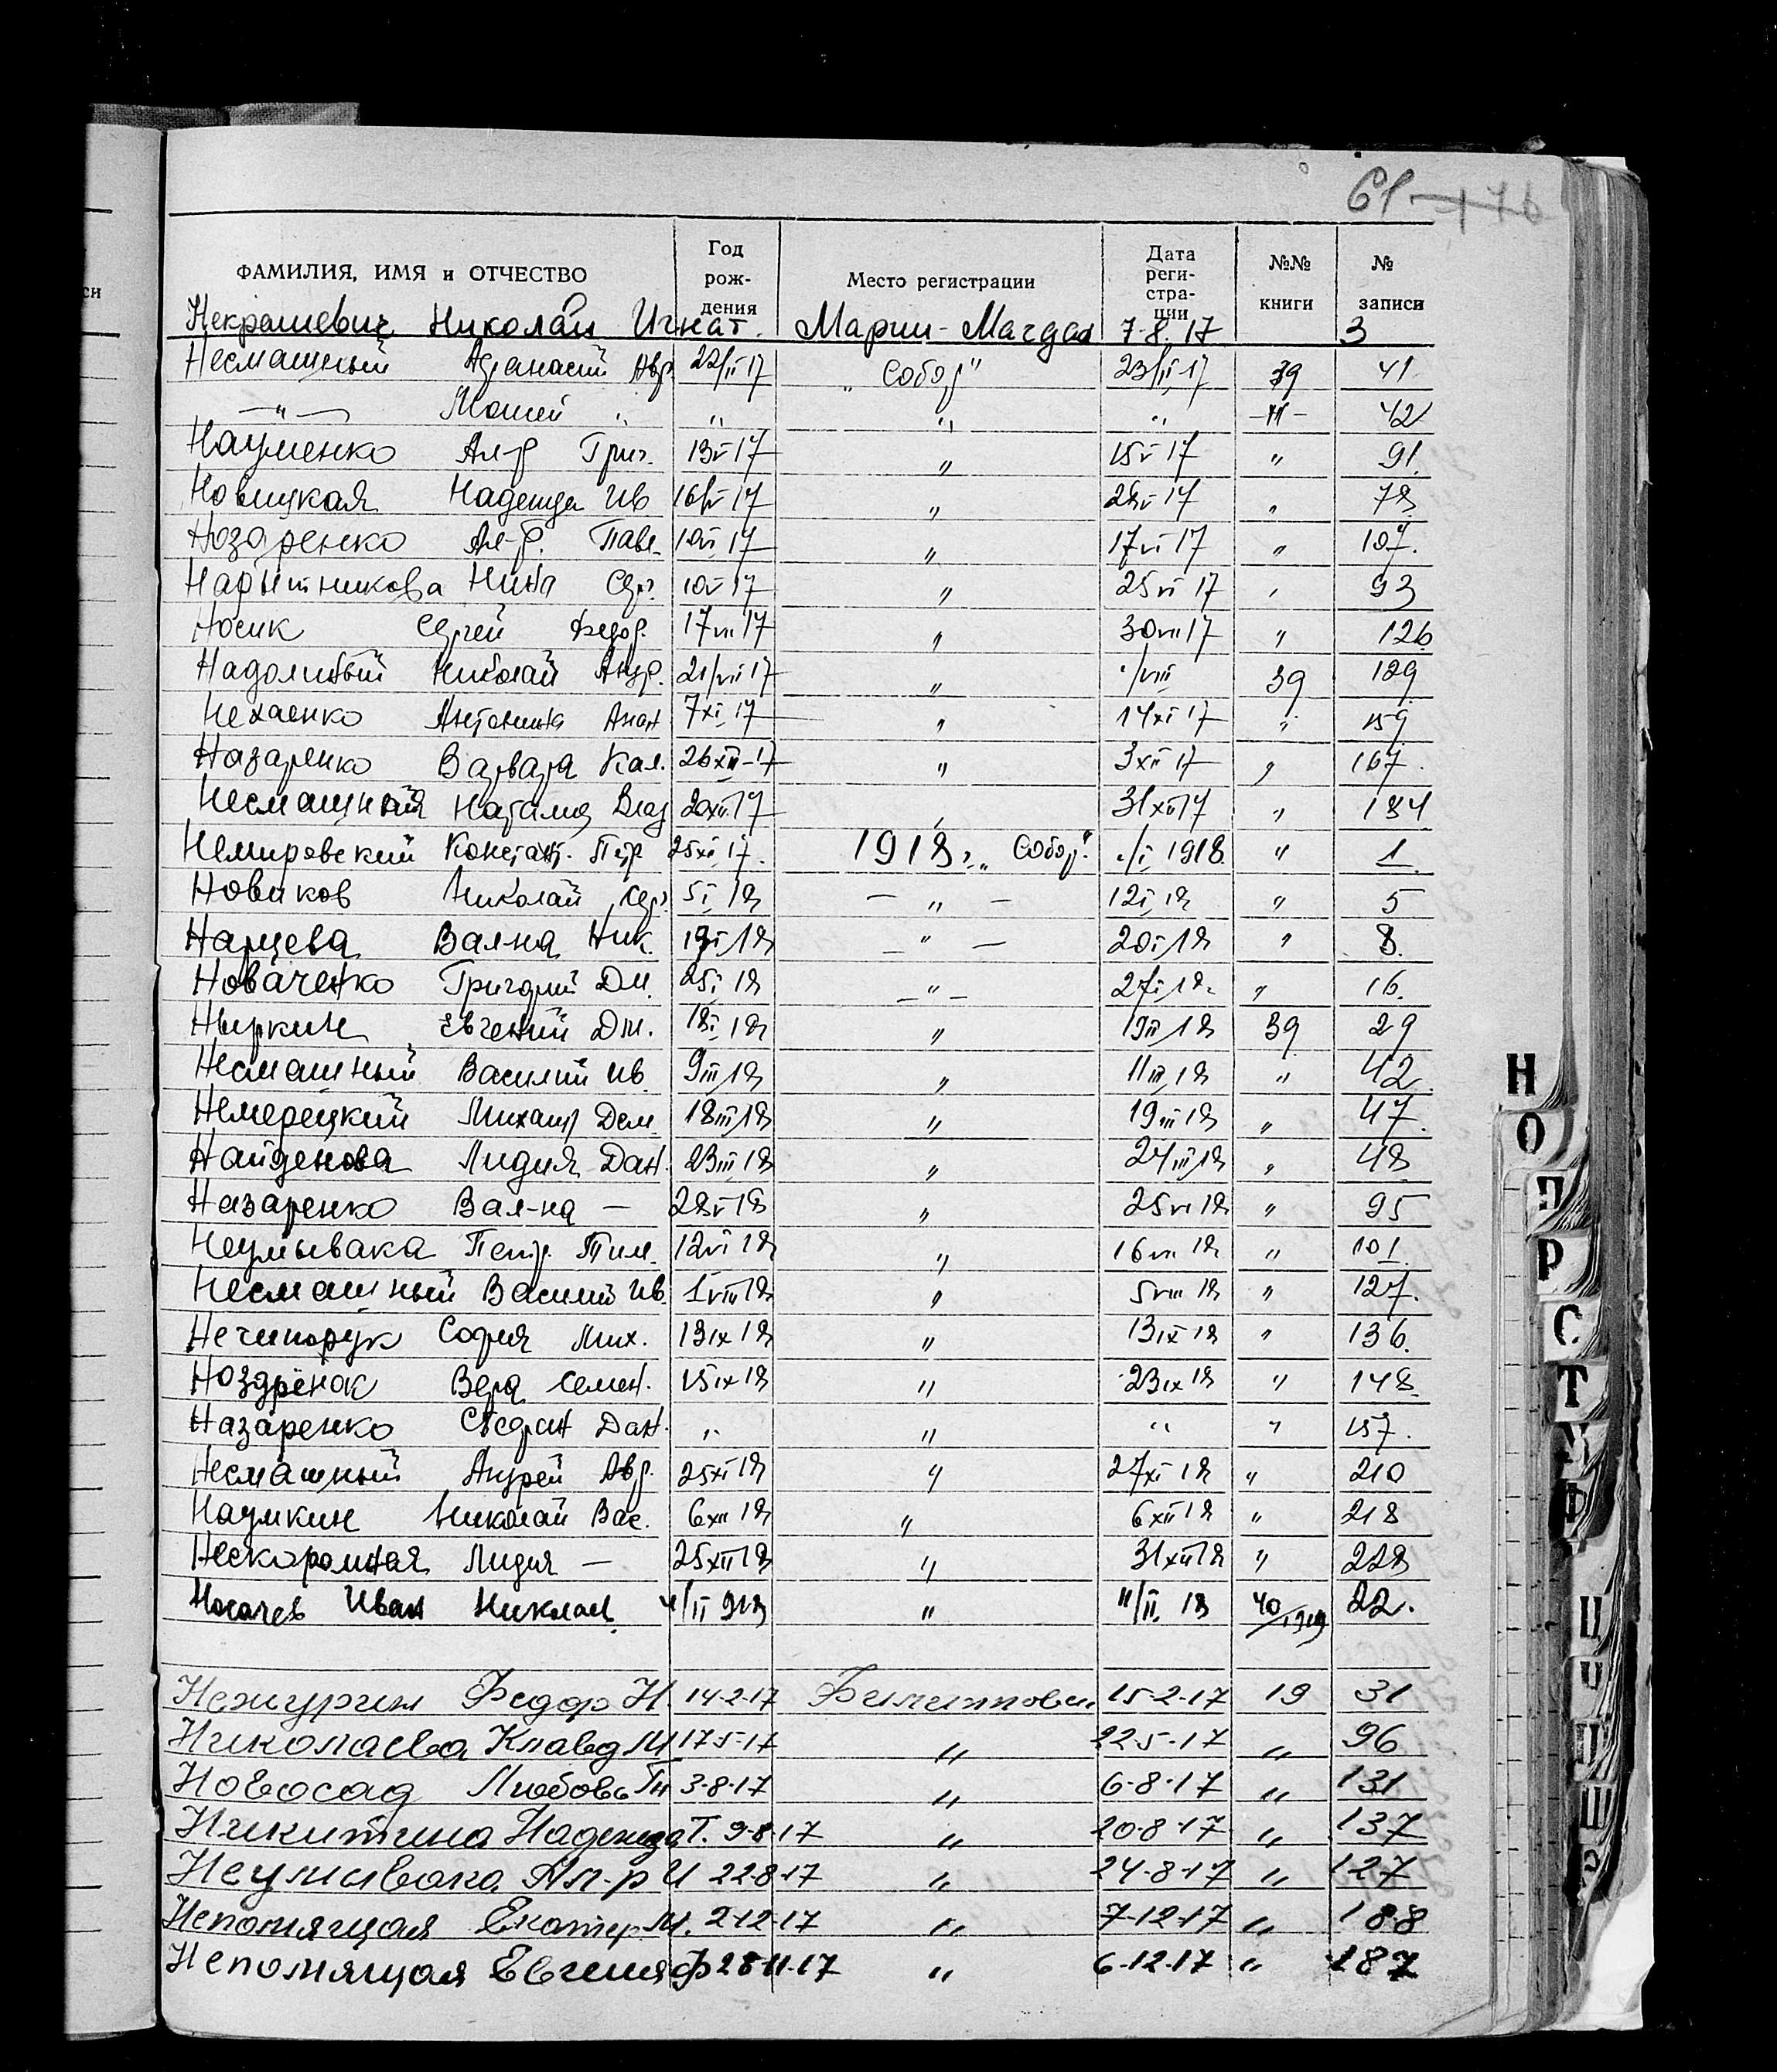 61 176
ФАМИЛИЯ, ИМЯ и ОТЧЕСТВО Год рож- дения Место регистрации Дата реги- стра- ции №№ книги № записи
Некрашевич Николай Игнат. Марии-Магдал 7-8.17 3
Несмашный Афанасий Авр. 22/II 17 "Собор" 23/II 17 39 41
—"— Моисей " " " " —"— 42
Науменко Ал-р Григ. 13V17 " 15V17 " 91.
Новицкая Надежда Ив 16/V 17 " 28V17 " 78
Нозаренко Ал-р. Павл. 10VI17 " 17VI17 " 107.
Нарытникова Нина Сер. 10V17 " 25VI17 " 93
Носик Сергей Федор. 17VII17 " 30VII17 " 126
Надолиный Николай Андр. 21/VII 17 " /VIII 39 129
Нехаенко Антонина Анан 7XI17 " 14XI17 " 159
Назаренко Варвара Кал. 26XII-17 " 3XII17 " 167.
Несмашная Наталия Влад 20XII17 " 31XII17 " 184
Немировский Констант. Петр 25XI17. 1918г. "Собор". /I 1918. " 1.
Новиков Николай Сер. 5I18 — " — 12I18 " 5
Нарцева Вал-на Ник. 19I18 — " — 20I18 " 8.
Новаченко Григорий Дм. 25I18 — " — 27I18. " 16.
Ныркин Евгений Дм. 18I18 " 19II18 39 29
Несмашный Василий Ив. 9III18 " 11III18 " 42.
Немерецкий Михаил Дем. 18III18 " 19III18 " 47.
Найденова Лидия Дан. 23III18 " 24III18 " 48
Назаренко Вал-на — 28V18 " 25VI18 " 95
Неумывака Петр. Тим. 12VI18 " 16VII18 " 101
Несмашный Василий Ив. 1VIII18 " 5VIII18 " 127.
Нечипорук София Мих. 13IX18 " 13IX18 " 136.
Ноздрёнок Вера Семен. 15IX18 " 23IX18 " 148.
Назаренко Стефан Дан. " " " " 157.
Несмашный Андрей Авр. 25XI18 " 27XI18 " 210
Наумкин Николай Вас. 6XII18 " 6XII18 " 218
Нескоромная Лидия — 25XII18 " 31XII18 " 228
Носачев Иван Николай. /II 918 " 11/II. 18 40/1919 22.
Нежурин Федор Н. 14-2-17 Филипповск. 15-2-17 19 31
Николаева Клавд М 17-5-17 " 22-5-17 " 96
Новосад Любовь Гн 3-8-17 " 6-8-17 " 131
Никитина Надежда Т. 9-8-17 " 20-8-17 " 137
Неумивака Ал-р И 22-8-17 " 24-8-17 " 127
Непомящая Екатер М. 2-12-17 " 7-12-17 " 188
Непомящая Евгения Ф 28-11-17 " 6-12-17 " 187
Н
О
П
Р
С
Т
У
Ф
Ц
Ч
Ш